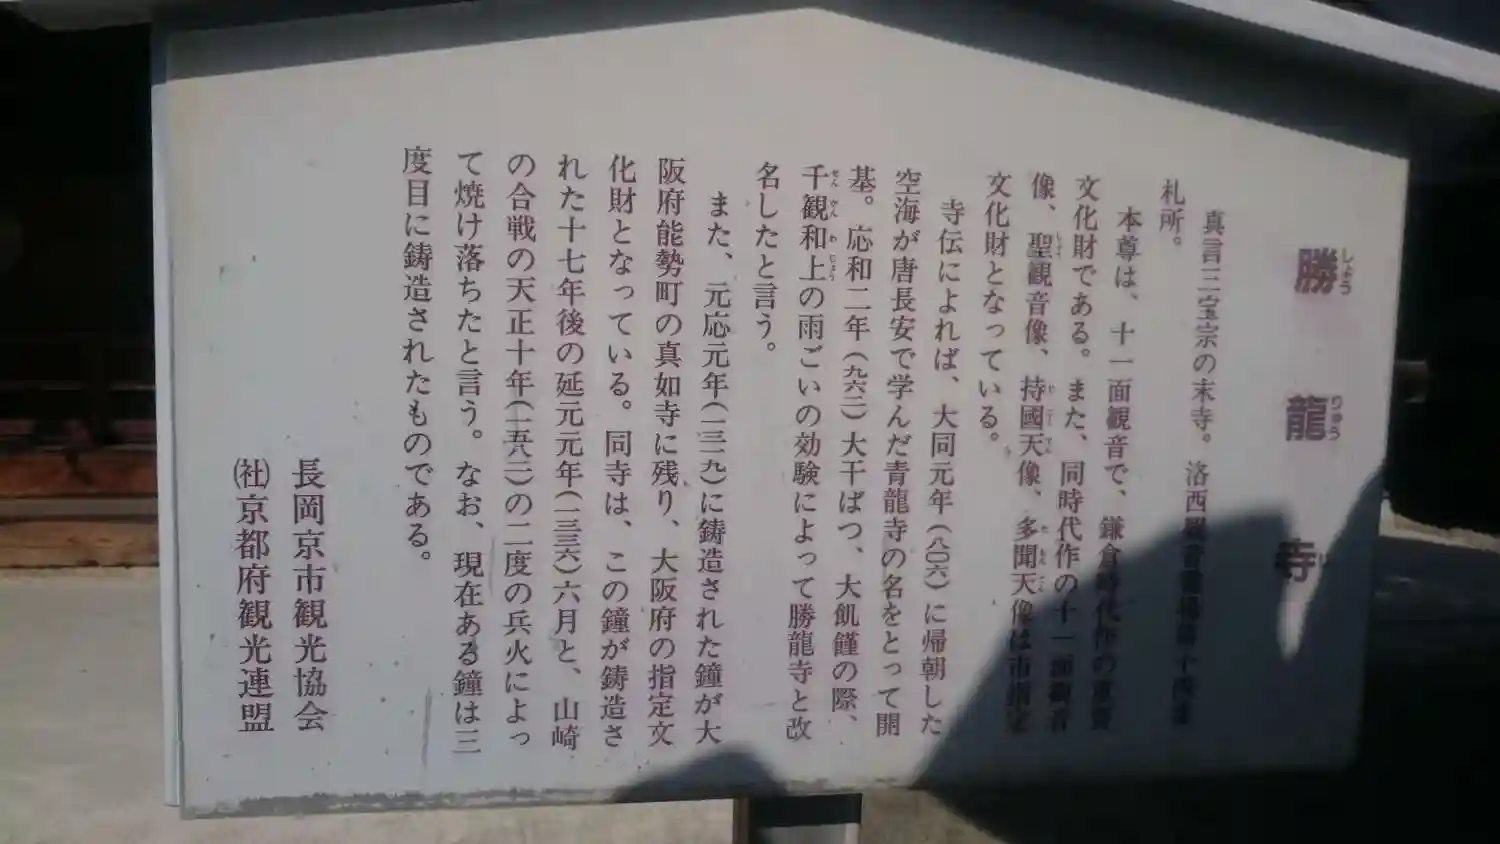 勝龍寺
しょうりゅうじ
真言三宝宗の末寺。洛西観音霊場第十四番
札所。
本尊は、十一面観音で、鎌倉時代作の重要
文化財である。また、同時代作の十一面観音
像、聖観音像、持國天像、多聞天像は市指定
文化財となっている。
寺伝によれば、大同元年(八〇六)に帰朝した
空海が唐長安で学んだ青龍寺の名をとって開
基。応和二年(九六二)大干ばつ、大飢饉の際、
千観和上の雨ごいの効験によって勝龍寺と改
せんかんわじょう
名したと言う。
また、元応元年(一三一九)に鋳造された鐘が大
阪府能勢町の真如寺に残り、大阪府の指定文
化財となっている。同寺は、この鐘が鋳造さ
れた十七年後の延元元年(一三三六)六月と、山崎
の合戦の天正十年(一五八二)の二度の兵火によっ
て焼け落ちたと言う。なお、現在ある鐘は三
度目に鋳造されたものである。
長岡京市観光協会
(社)京都府観光連盟